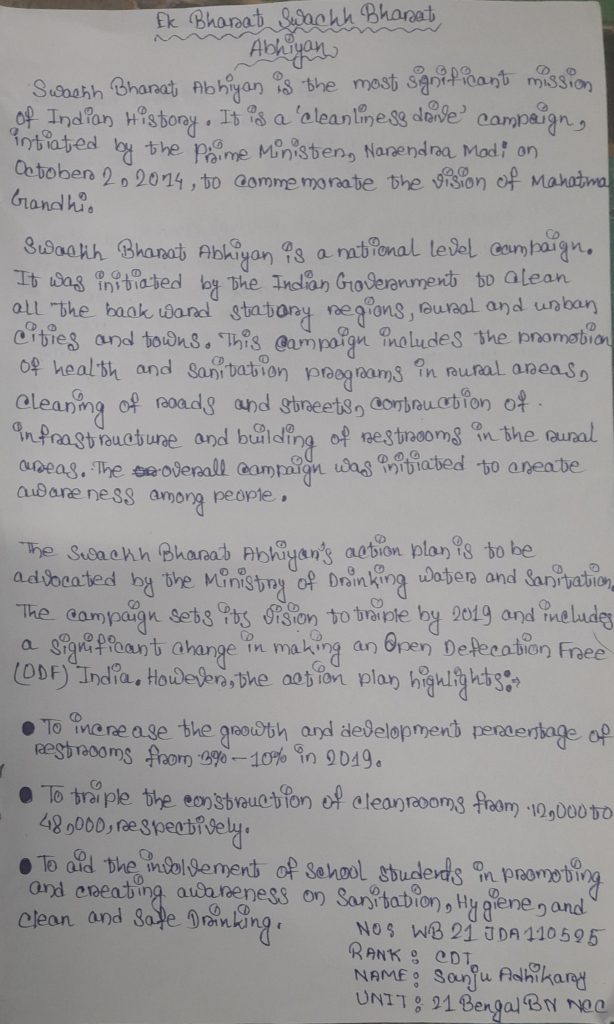 Ek Bharat Swachh Bharat
Abhiyan
Swachh Bharat Abhiyan is the most significant mission
of Indian History. It is a 'cleanliness drive' campaign,
intiated by the Prime Minister, Narendra Modi on
October 2, 2014, to commemorate the vision of Mahatma
Gandhi.
Swachh Bharat Abhiyan is a national level campaign.
It was initiated by the Indian Government to clean
all the back ward statory regions, rural and urban
cities and towns. This campaign includes the promotion
of health and sanitation programs in rural areas,
cleaning of roads and streets, contruction of
infrastructure and building of restrooms in the rural
areas. The overall campaign was initiated to create
awareness among people.
The Swachh Bharat Abhiyan's action plan is to be
advocated by the Ministry of Drinking Water and Sanitation.
The campaign sets its vision to triple by 2019 and includes
a significant change in making an Open Defecation Free
(ODF) India. However, the action plan highlights:→
● To increase the growth and development percentage of
restrooms from 3% - 10% in 2019.
● To triple the construction of cleanrooms from 12,000 to
48,000, respectively.
● To aid the involvement of school students in promoting
and creating awareness on Sanitation, Hygiene, and
clean and Safe Drinking.
NO: WB 21 JDA 110525
RANK: CDT
NAME: Sanju Adhikary
UNIT: 21 Bengal BN NCC